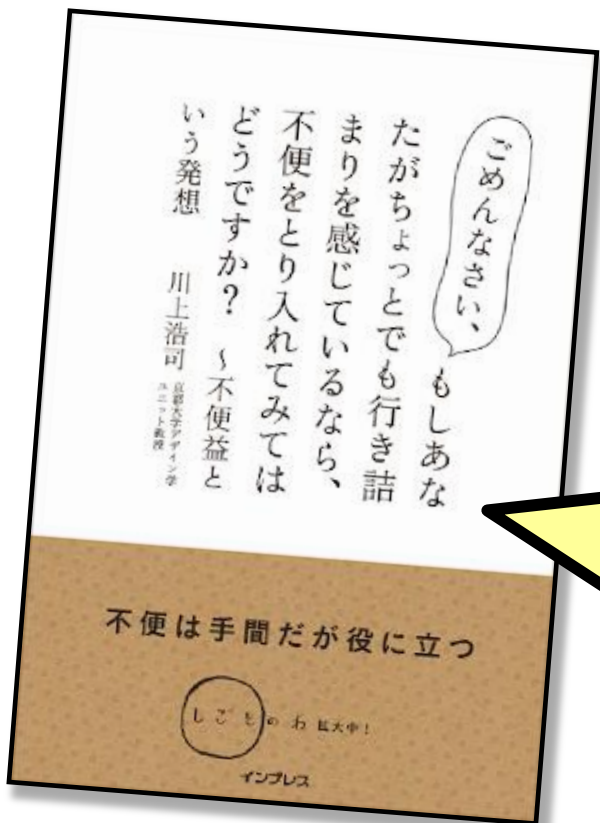 ごめんなさい、
もしあな
たがちょっとでも行き詰
まりを感じているなら、
不便をとり入れてみては
どうですか? ~不便益と
いう発想
川上浩司
京都大学デザイン学
ユニット教授
不便は手間だが役に立つ
しごとのわ 拡大中!
インプレス